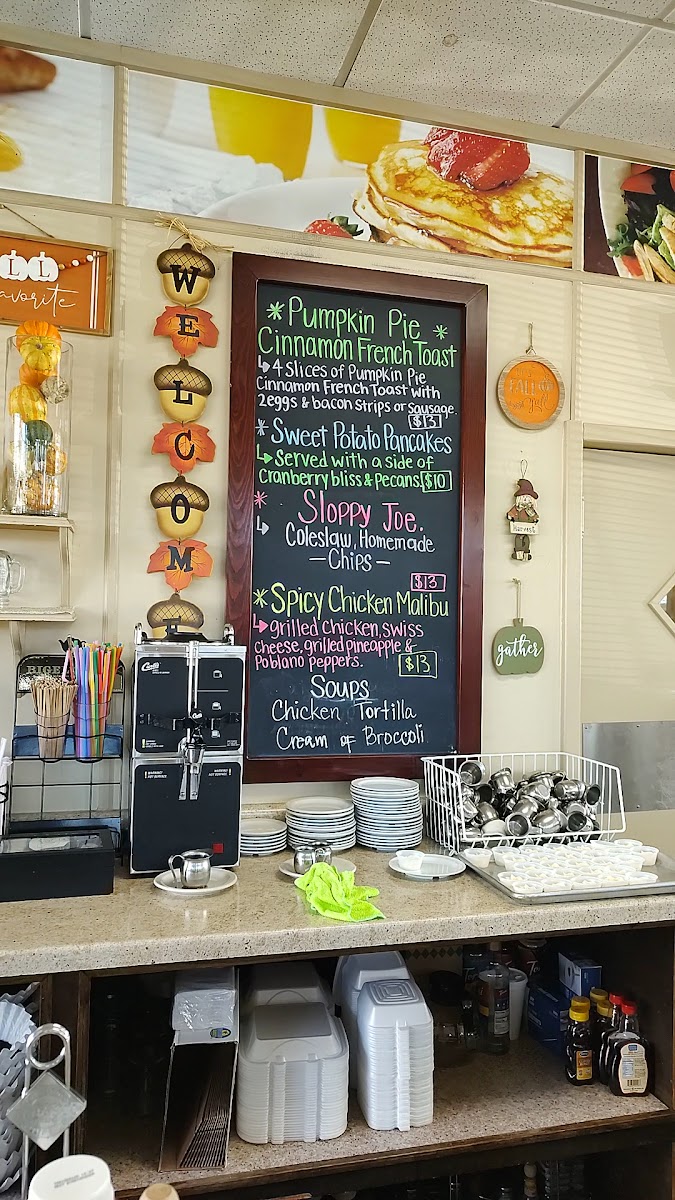 LL
avorite
W
E
L
C
O
M
* Pumpkin Pie *
Cinnamon French Toast
↳ 4 Slices of Pumpkin Pie
Cinnamon French Toast with
2eggs & bacon strips or Sausage.
$13
* Sweet Potato Pancakes
↳ Served with a side of
Cranberry bliss & Pecans $10
* Sloppy Joe.
↳ Coleslaw, Homemade
— Chips —
$13
* Spicy Chicken Malibu
↳ grilled chicken, swiss
cheese, grilled pineapple &
Poblano peppers. $13
Soups
Chicken Tortilla
Cream of Broccoli
FALL
Harvest
gather
Curtis